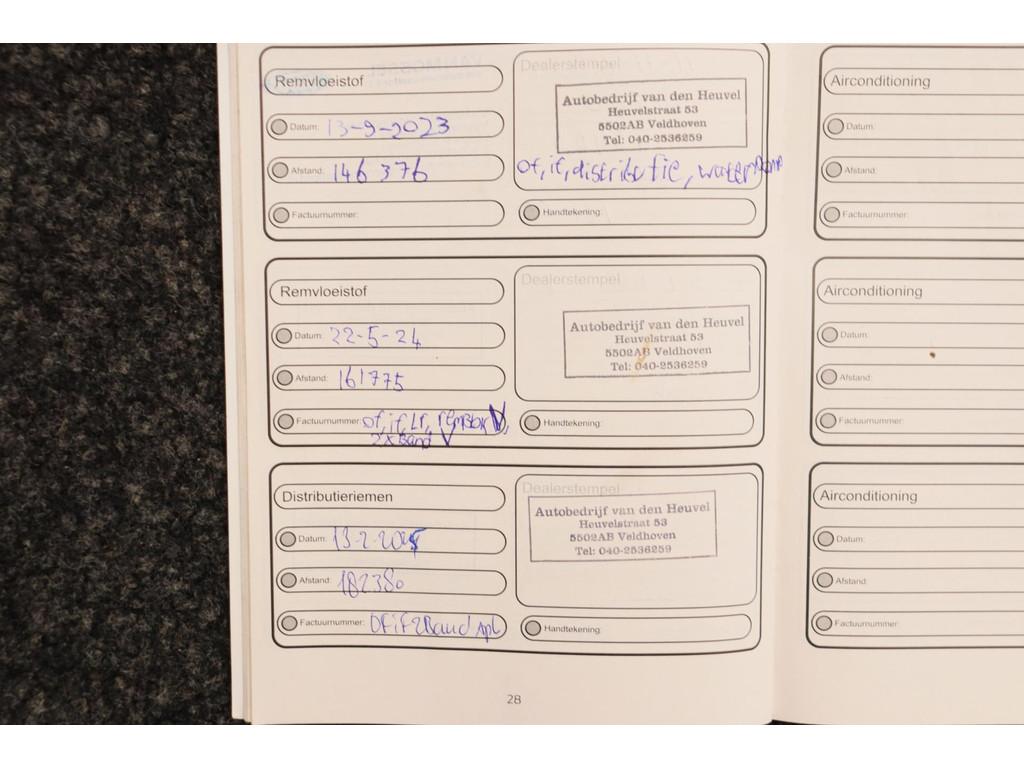 Remvloeistof
Dealerstempel
Datum: 13-9-2023
Afstand: 146 376
Factuurnummer:
Autobedrijf van den Heuvel
Heuvelstraat 53
5502AB Veldhoven
Tel: 040-2536259
of, if, distributie, waterpomp
Handtekening:
Airconditioning
Datum:
Afstand:
Factuurnummer:
Remvloeistof
Dealerstempel
Datum: 22-5-24
Afstand: 161775
Factuurnummer: of, if, Lf,
2x Band V
Autobedrijf van den Heuvel
Heuvelstraat 53
5502AB Veldhoven
Tel: 040-2536259
Handtekening:
Airconditioning
Datum:
Afstand:
Factuurnummer:
Distributieriemen
Dealerstempel
Datum: 13-2-2025
Afstand: 182380
Factuurnummer: OF iF 2Band
Autobedrijf van den Heuvel
Heuvelstraat 53
5502AB Veldhoven
Tel: 040-2536259
Handtekening:
Airconditioning
Datum:
Afstand:
Factuurnummer:
28